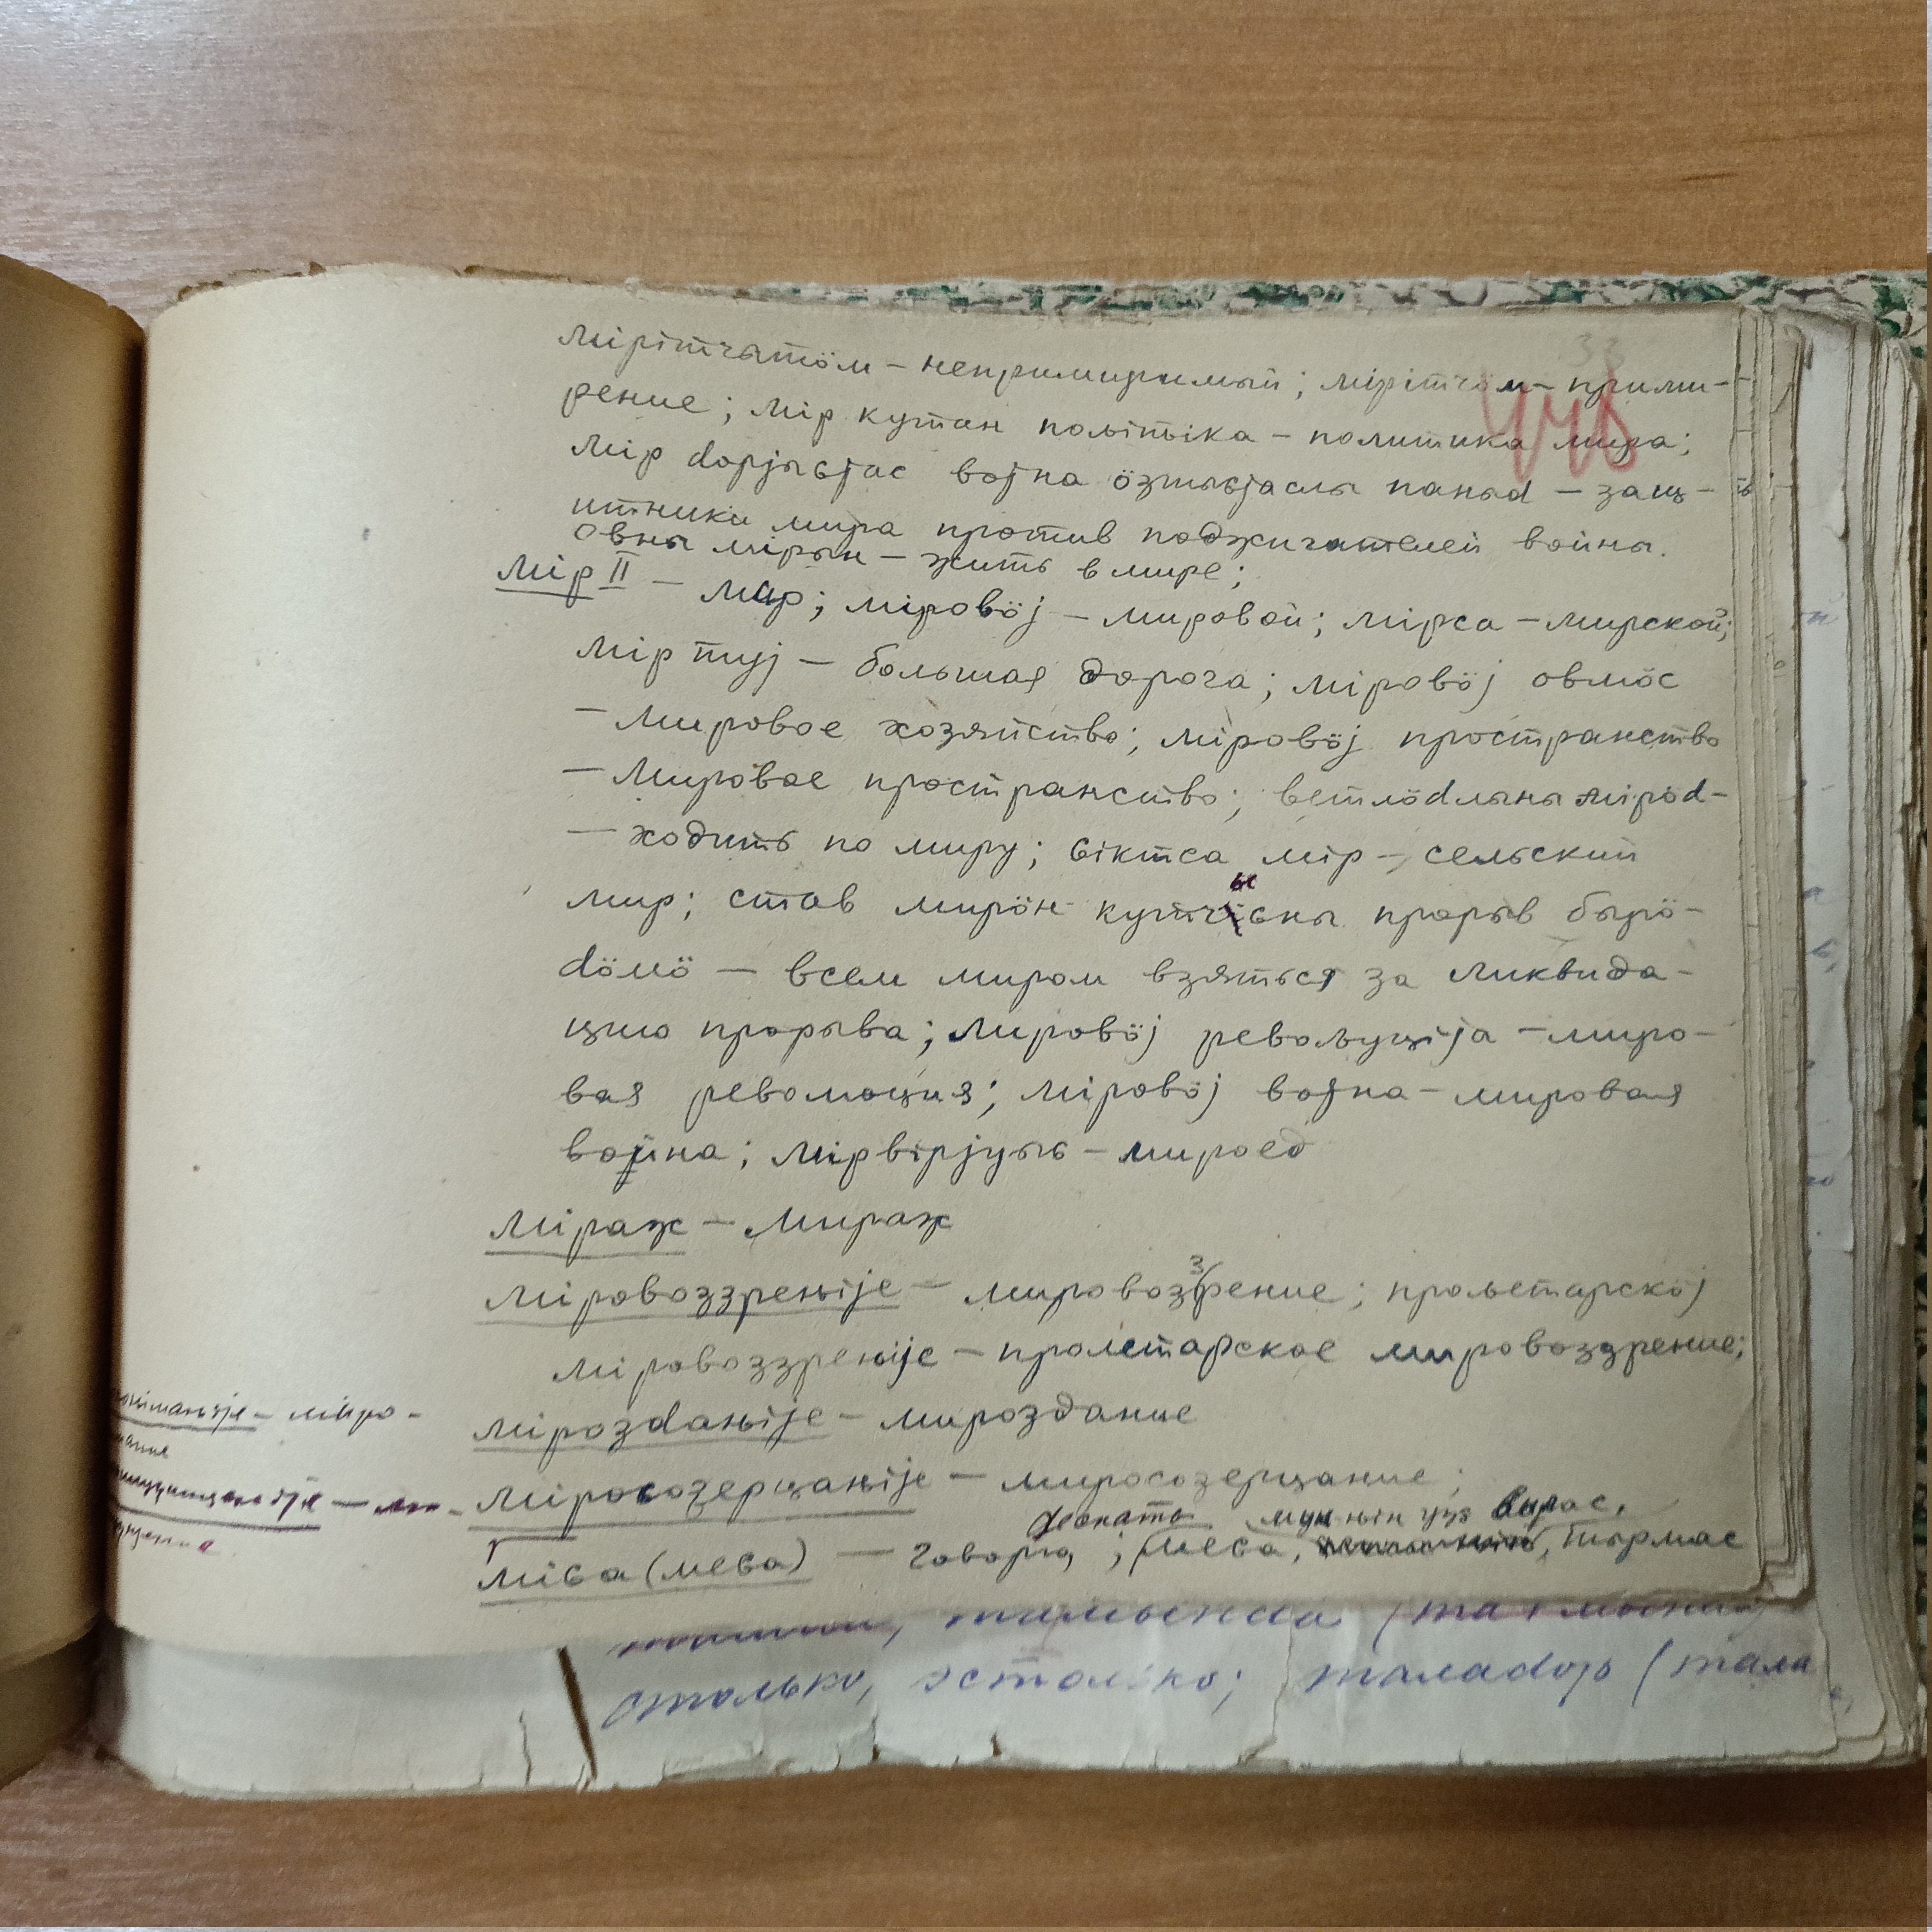 33
448
мірітчатӧм – непримиримый; мірітчӧм – прими-
рение; мір кутан поԉіԏіка – политика мира;
мір dорjыԍjас воjна ӧзтыԍjаслы паныd – защ-
итники мира против поджигателей войны.
овны мірын – жить в мире;
мір II – мир; міровӧj – мировой; мірса – мирской;
мір туj – большая дорога; міровӧj овмӧс
– мировое хозяйство; міровӧj пространство
– мировое пространство; ветлӧdлыны мірӧd –
– ходить по миру; ԍіктса мір – сельский
мир; став мирӧн кутчыԍны прорыв бырӧ-
dӧмӧ – всем миром взяться за ликвида-
цию прорыва; міровӧj револуціjа – миро-
вая революция; міровӧj воjна – мировая
война; мірвірjуыԍ – мироед
міраж – мираж
міровоззреԋіjе – мировоззрение; проԉетарскӧj
міровоззреԋіjе – пролетарское мировоззрение;
мірозdаԋіjе – мироздание
міросозерцаԋіjе – миросозерцание;
міԍа (меԍа) – говорю; меԍа, тырмас
столько, эстолько;